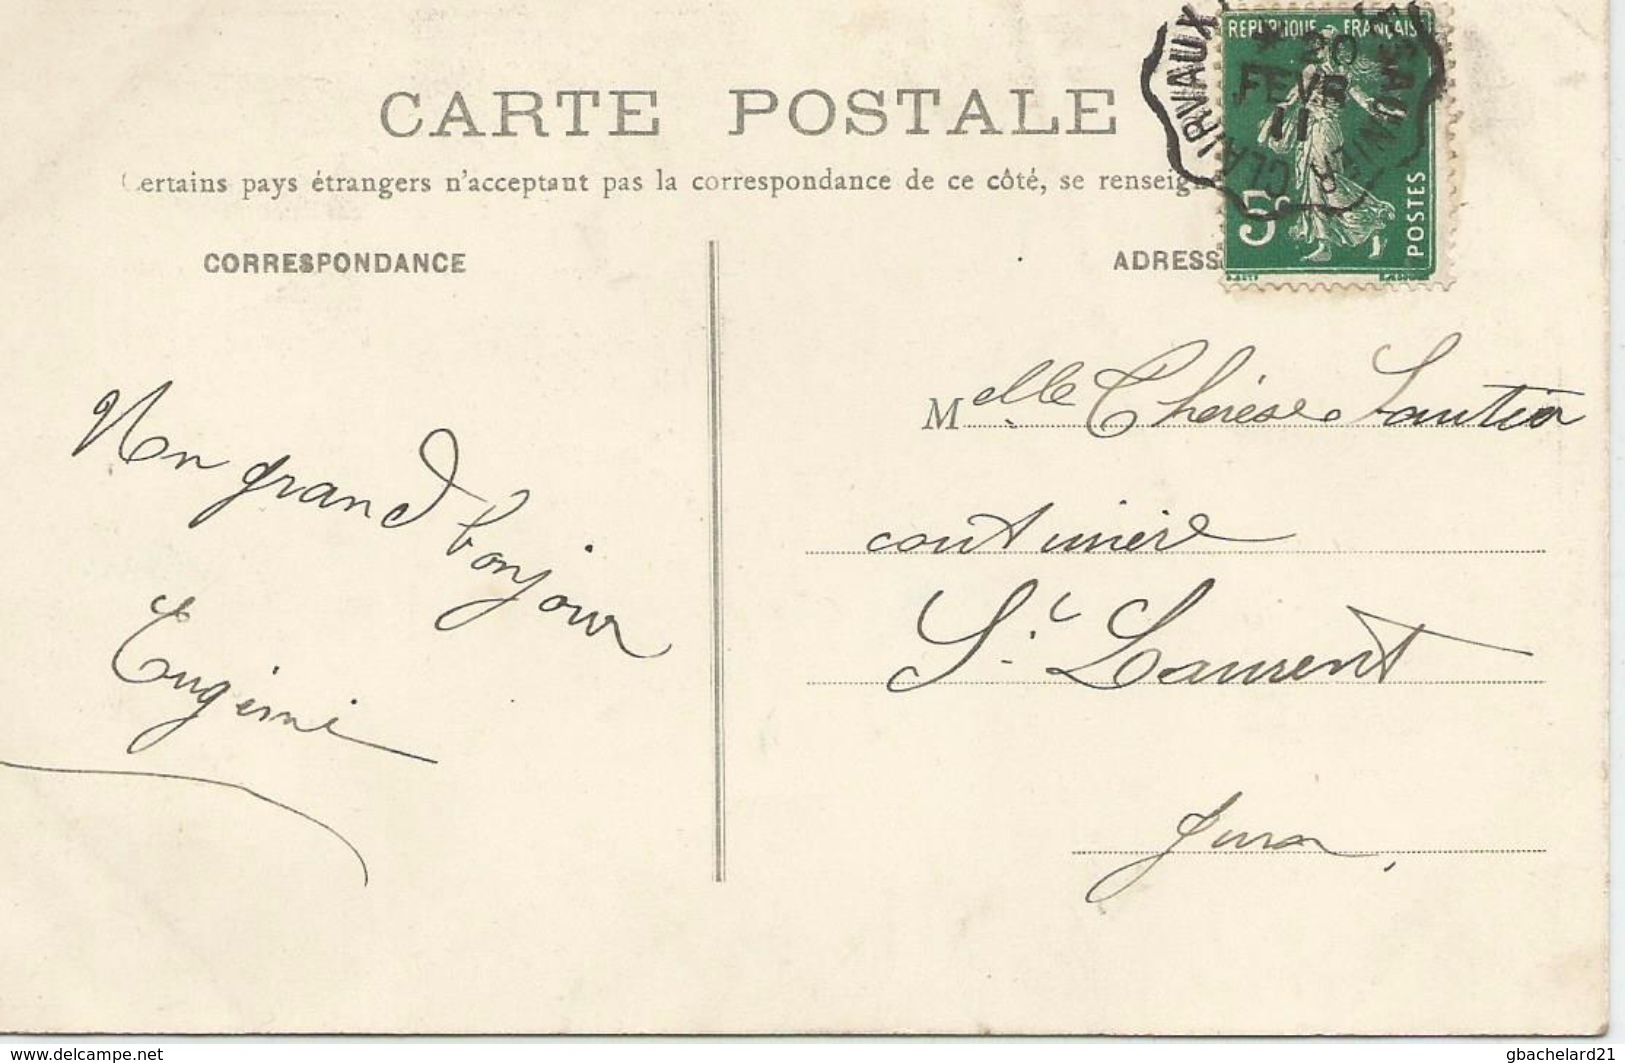 CARTE POSTALE
Certains pays étrangers n'acceptent pas la correspondance de ce côté, se renseign
CORRESPONDANCE
ADRESS
REPUBLIQUE FRANÇAISE
20
FEVR
11
CLAIRVAUX
SAUNIER
5c
POSTES
Mon grand bonjour
Eugénie
Melle Thérèse Sautier
couturière
St. Laurent
Jura.
www.delcampe.net
gbachelard21